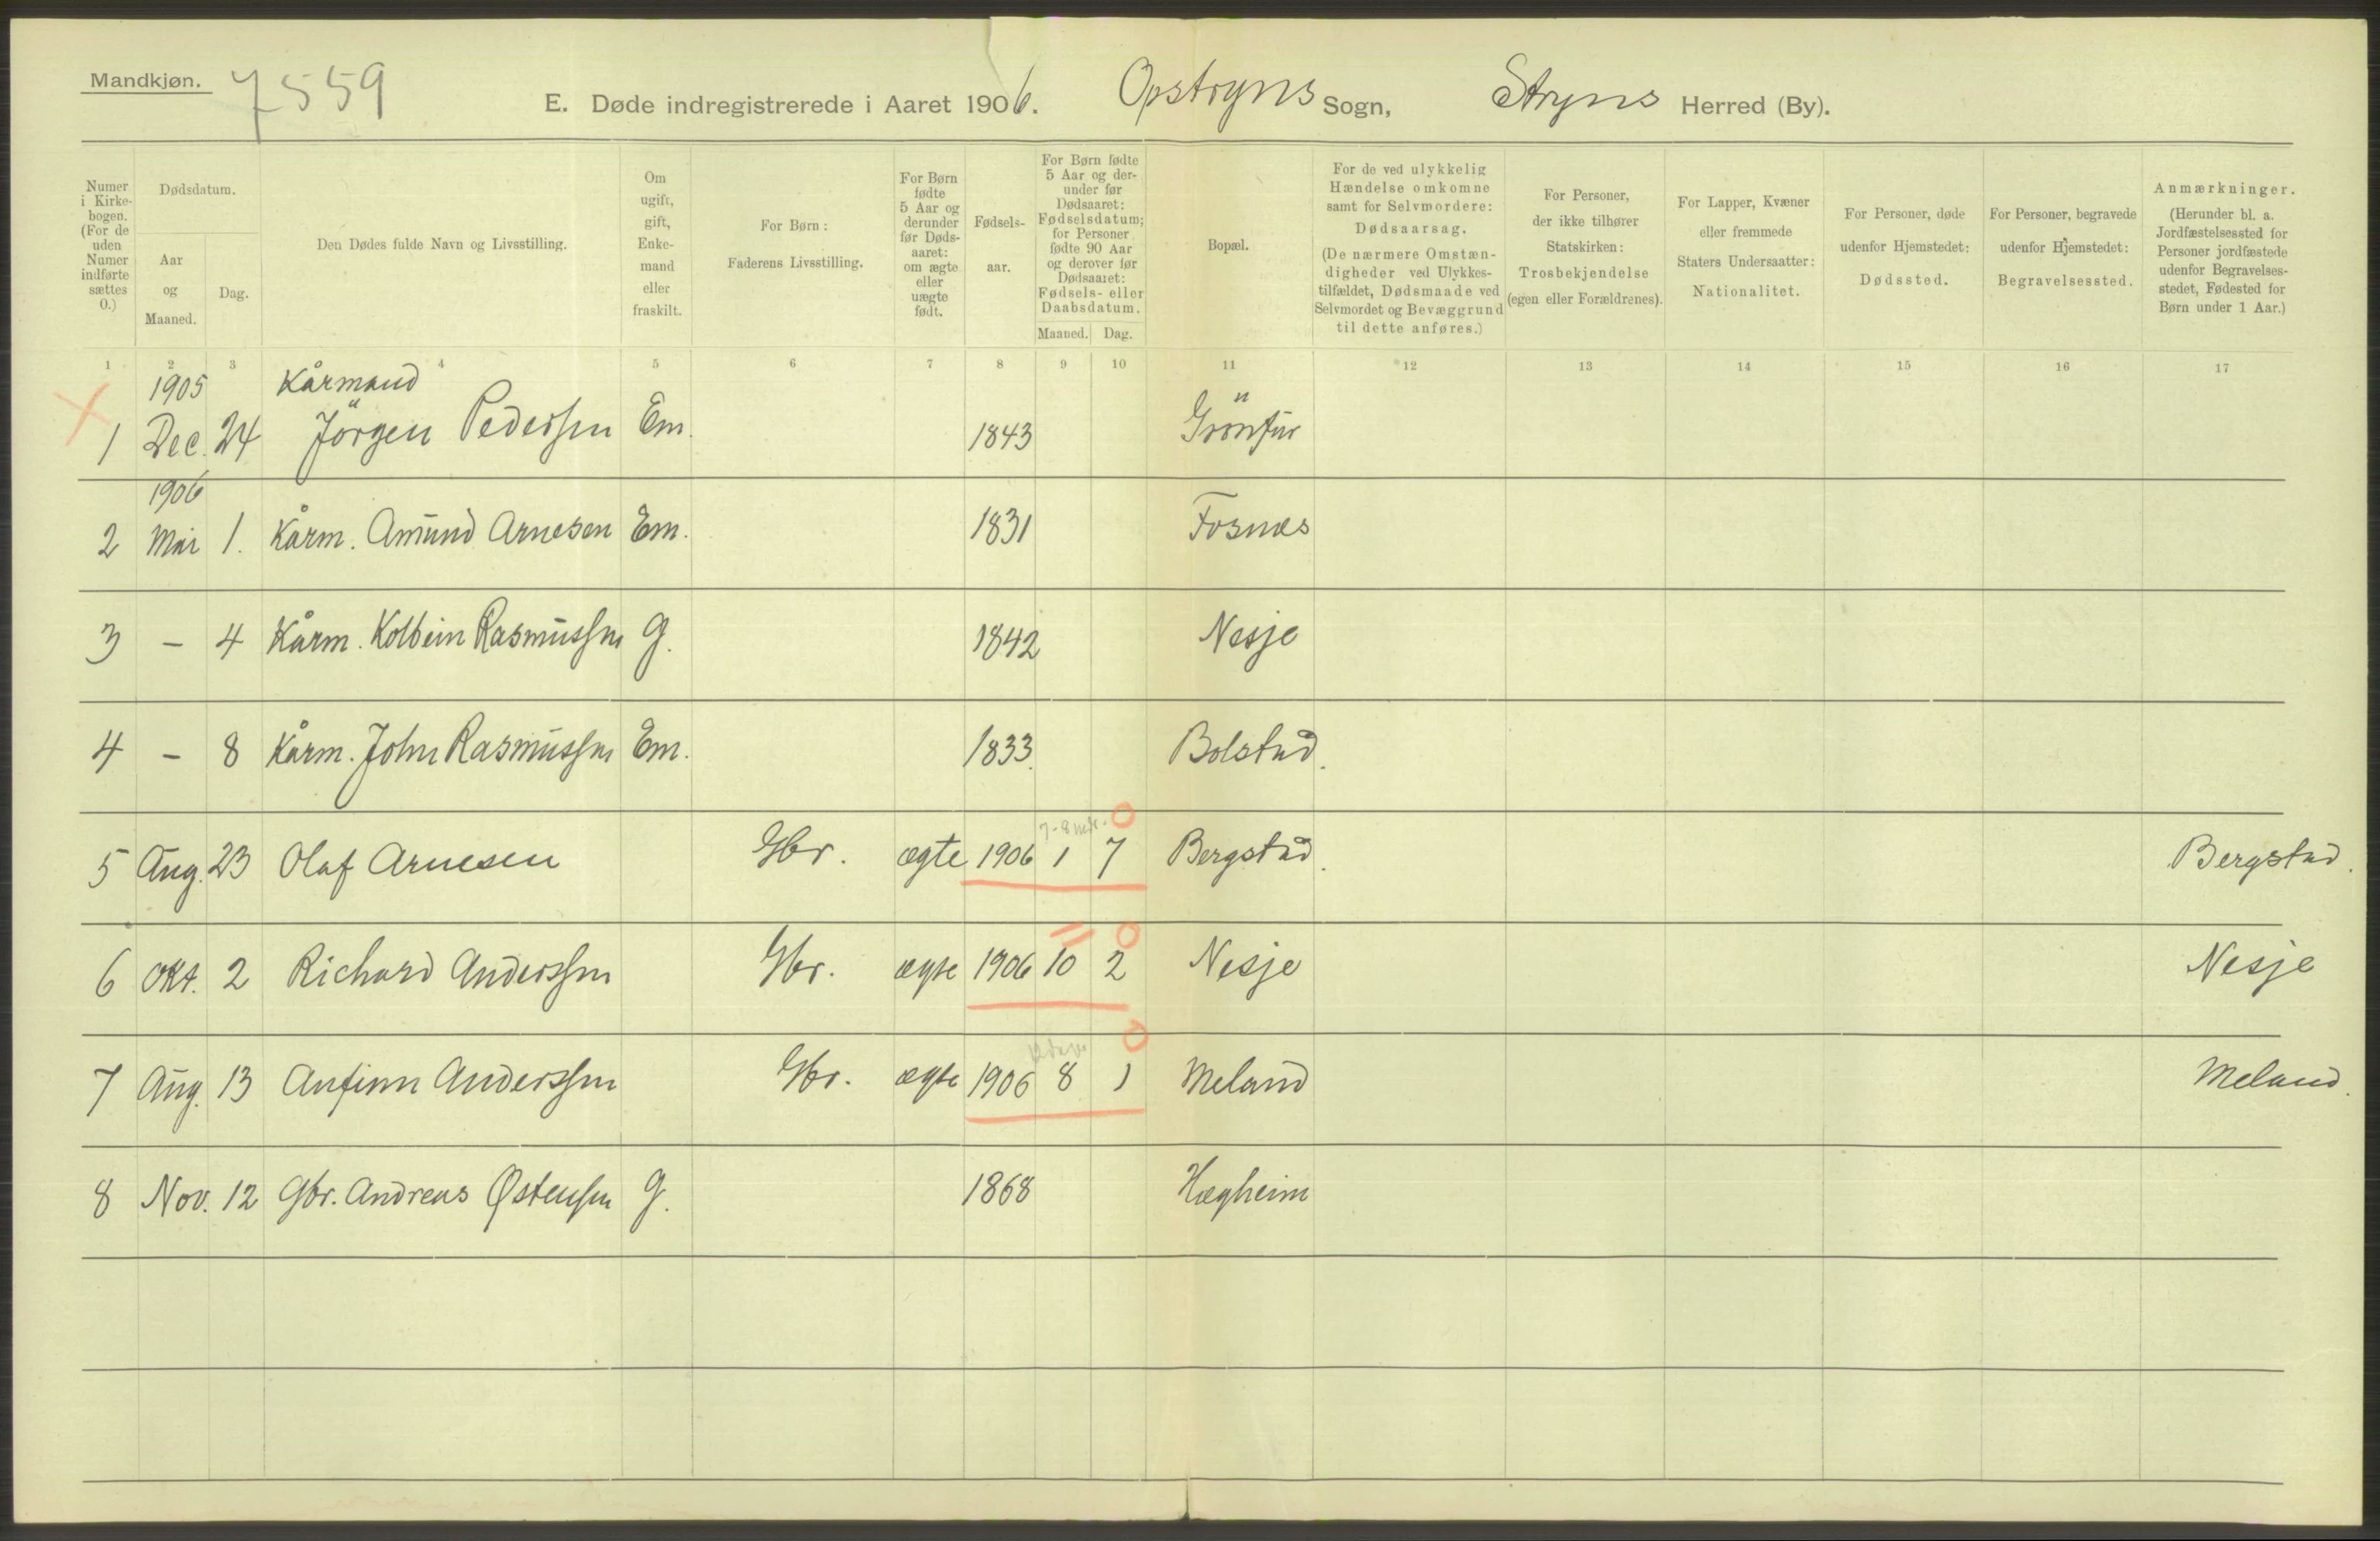 Mandkjøn. 7559
E. Døde indregistrerede i Aaret 1906. Opstryns Sogn, Stryns Herred (By).
Numer i Kirke-bogen. (For de uden Numer indførte sættes 0.)
Dødsdatum.
Aar og Maaned.
Dag.
Den Dødes fulde Navn og Livsstilling.
Om ugift, gift, Enke-mand eller fraskilt.
For Børn: Faderens Livsstilling.
For Børn fødte 5 Aar og derunder før Døds-aaret: om ægte eller uægte født.
Fødsels-aar.
For Børn fødte 5 Aar og der-under før Dødsaaret: Fødselsdatum; for Personer fødte 90 Aar og derover før Dødsaaret: Fødsels- eller Daabsdatum.
Maaned. Dag.
Bopæl.
For de ved ulykkelig Hændelse omkomne samt for Selvmordere: Dødsaarsag. (De nærmere Omstæn-digheder ved Ulykkes-tilfældet, Dødsmaade ved Selvmordet og Bevæggrund til dette anføres.)
For Personer, der ikke tilhører Statskirken: Trosbekjendelse (egen eller Forældrenes).
For Lapper, Kvæner eller fremmede Staters Undersaatter: Nationalitet.
For Personer, døde udenfor Hjemstedet: Dødssted.
For Personer, begravede udenfor Hjemstedet: Begravelsessted.
Anmærkninger. (Herunder bl. a. Jordfæstelsessted for Personer jordfæstede udenfor Begravelses-stedet, Fødested for Børn under 1 Aar.)
1 2 3 4 5 6 7 8 9 10 11 12 13 14 15 16 17
1905 Kårmand
1 Dec. 24 Jörgen Pederssen Em. 1843
1906
2 Mai 1. Kårm. Amund Arnesen Em. 1831 Fosnes
3 – 4 Kårm. Kolbein Rasmussen g. 1842 Nesje
4 – 8 Kårm. John Rasmussen Em. 1833. Bolstad.
7-8 mdr. 0
5 Aug. 23 Olaf Arnesen Gbr. ægte 1906 1 7 Bergstad. Bergstad.
0
6 Okt. 2 Richard Anderssen Gbr. ægte 1906 10 2 Nesje Nesje
0
7 Aug. 13 Anfinn Anderssen Gbr. ægte 1906 8 1 Meland Meland.
8 Nov. 12 Gbr. Andreas Østensen g. 1868 Hægheim